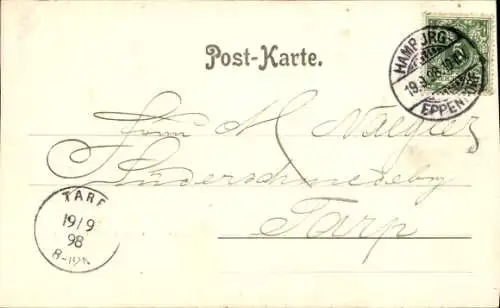 Post-Karte.
HAMBURG
19.9.98
EPPENDORF
Herrn M Naegler
Süderschmedeby
Tarp
TARP
19/9
98